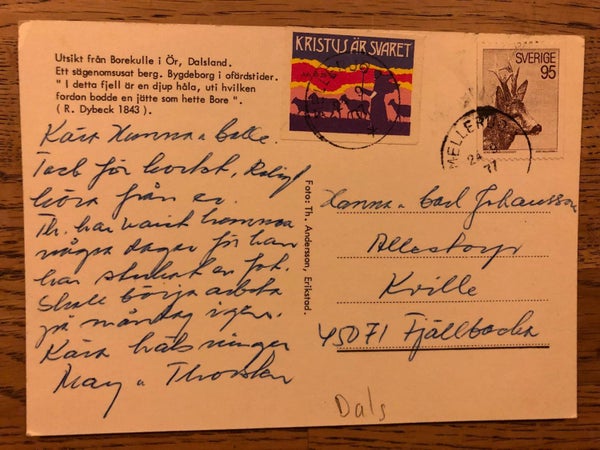 Utsikt från Borekulle i Ör, Dalsland.
Ett sägenomsusat berg. Bygdeborg i ofärdstider.
" I detta fjell är en djup håla, uti hvilken
fordon bodde en jätte som hette Bore ".
( R. Dybeck 1843 ).
KRISTUS ÄR SVARET
SVERIGE
95
MELLER
24
77
Kära Hanna o Calle.
Tack för kortet, Roligt
höra från er.
Th. har varit hemma
några dagar för han
har stukat en fot.
Skall börja arbeta
på måndag igen.
Kära hälsningar
May o Thorsten
Foto: Th. Andersson, Erikstad.
Hanna o Carl Johansson
Allestorp
Kville
45071 Fjällbacka
Dals